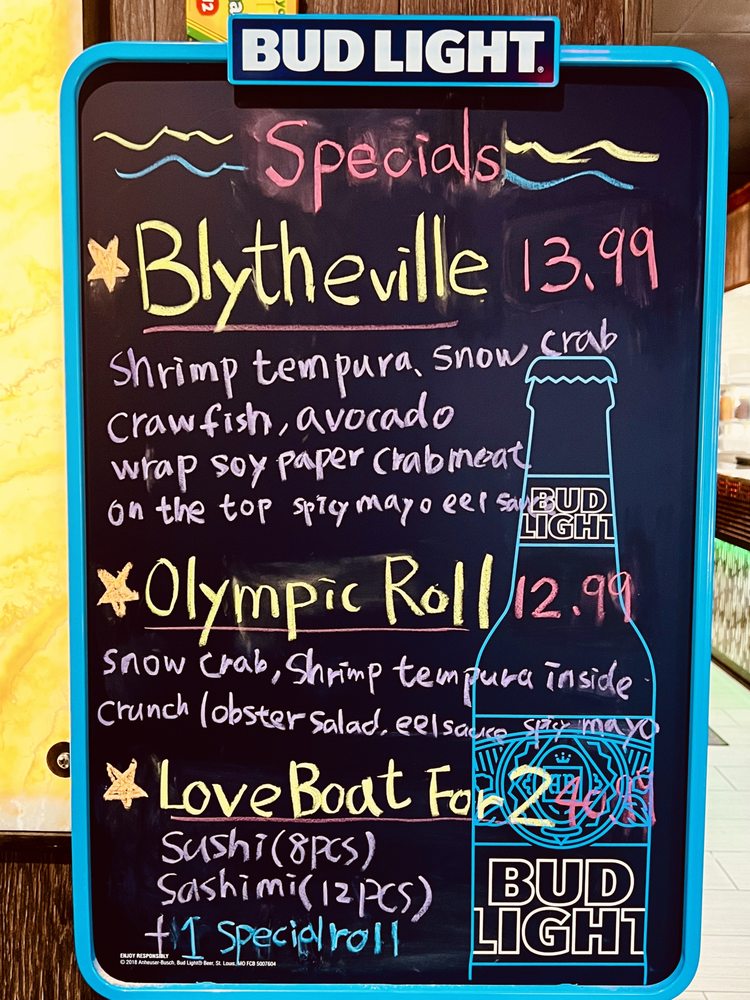 BUD LIGHT.
Specials
Blytheville 13.99
Shrimp tempura, snow crab
crawfish, avocado
wrap soy paper crabmeat
on the top spicy mayo eel sauce
BUD
LIGHT
Olympic Roll 12.99
snow crab, shrimp tempura inside
crunch lobster salad, eel sauce spicy mayo
Love Boat For 2 40.99
Sushi (8pcs)
Sashimi (12pcs)
+1 Special roll
BUD
LIGHT
ENJOY RESPONSIBLY
© 2018 Anheuser-Busch, Bud Light® Beer, St. Louis, MO FCB 5007604